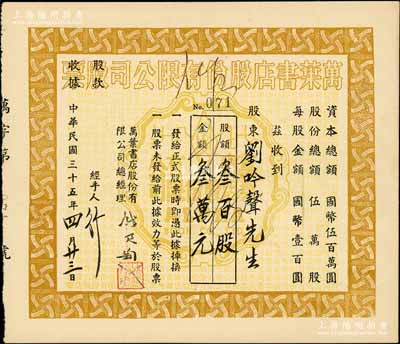 上海陽明拍賣
萬葉書店股份有限公司股票
No. 071
資本總額 國幣伍百萬圓
股份總額 伍萬股
每股金額 國幣壹百圓
茲收到
股東 劉吟聲先生
股額 叁百股
金額 叁萬元
一 發給正式股票時即憑此據掉換
一 股票未發給前此據效力等於股票
萬葉書店股份有限公司總經理
經手人
中華民國三十五年四月廿三日
股款收據
萬字第 號